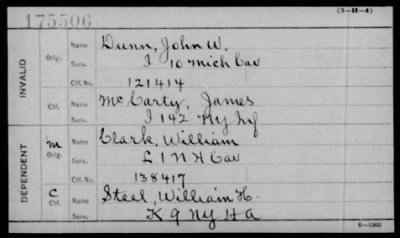 175506
(3-H-4)
INVALID
Orig.
Name Dunn, John W.
Serv. I 10 Mich Cav
Ctf. No. 121414
Ctf.
Name McCarty, James
Serv. I 142 Ny Inf
DEPENDENT
m
Orig.
Name Clark, William
Serv. L 1 N H Cav
Ctf. No. 138417
C
Ctf.
Name Steel, William H.
Serv. K 9 Ny H A
6-1302